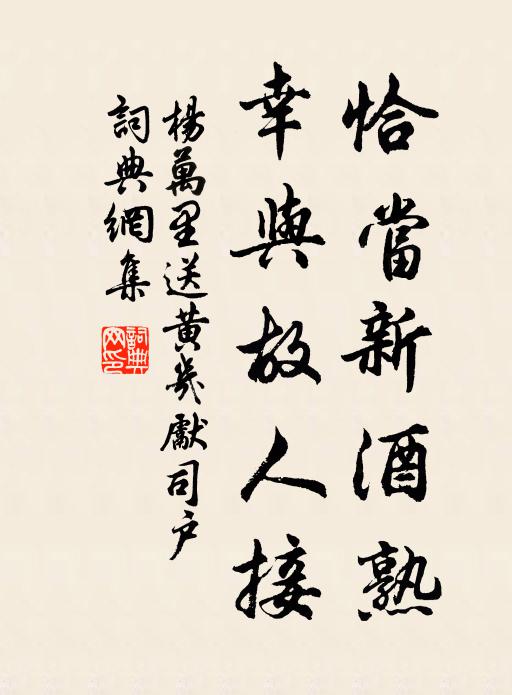 恰當新酒熟
幸與故人接
楊萬里送黃巖獻司户
詞典網集
詞典网印